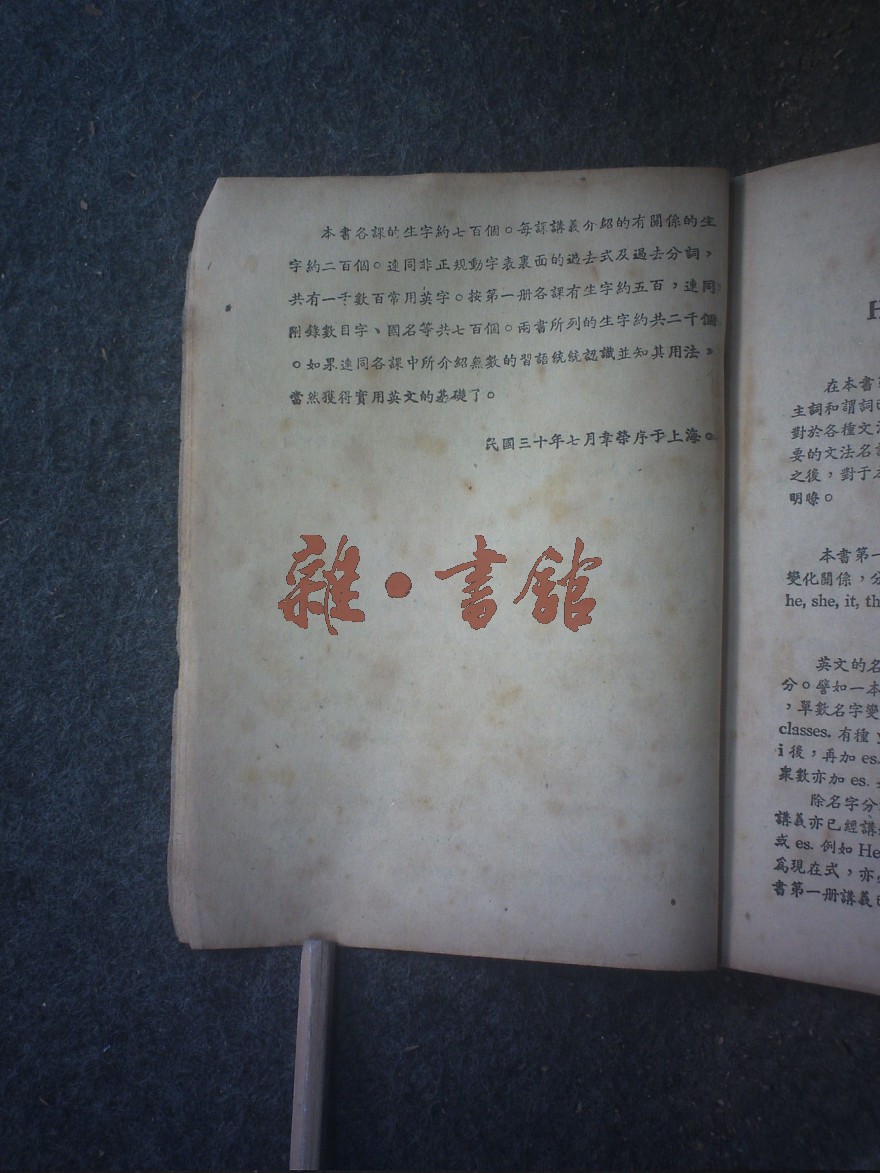 本書各課的生字約七百個。每課講義介紹的有關係的生
字約二百個。連同非正規動字表裏面的過去式及過去分詞，
共有一千數百常用英字。按第一册各課有生字約五百，連同
附錄數目字、國名等共七百個。兩書所列的生字約共二千個
。如果連同各課中所介紹無數的習語統統認識並知其用法，
當然獲得實用英文的基礎了。
民國三十年七月韋榮序于上海。
雜·書館
H
在本書
主詞和謂詞
對於各種文法
要的文法名
之後，對于
明瞭。
本書第一
變化關係，分
he, she, it, th
英文的名
分。譬如一本
，單數名字變
classes. 有種 y
i 後，再加 es.
衆數亦加 es.
除名字分
講義亦已經講
或 es. 例如 He
爲現在式，亦
書第一册講義已